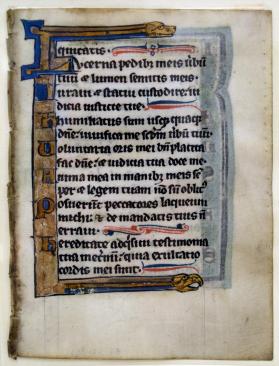 equitatis.
Lucerna pedibꝫ meis ūbū
tuū et lumen semitis meis.
Iuraui et statui custodire iu
dicia iusticie tue.
Humiliatus sum usꝙ quaqꝫ
dn̄e: uiuifica me scdm̄ ūbū tuū.
Uoluntaria oris mei bn̄placita
fac dn̄e: et iudicia tua doce me.
Anima mea in manibꝫ meis sē
per et legem tuam nō sū oblitꝰ
Posuerūt peccatores laqueum
michi: et de mandatis tuis n̄
erraui.
Hereditate adq̄siui testimonia
tua in et̄nū: quia exultatio
cordis mei sunt.